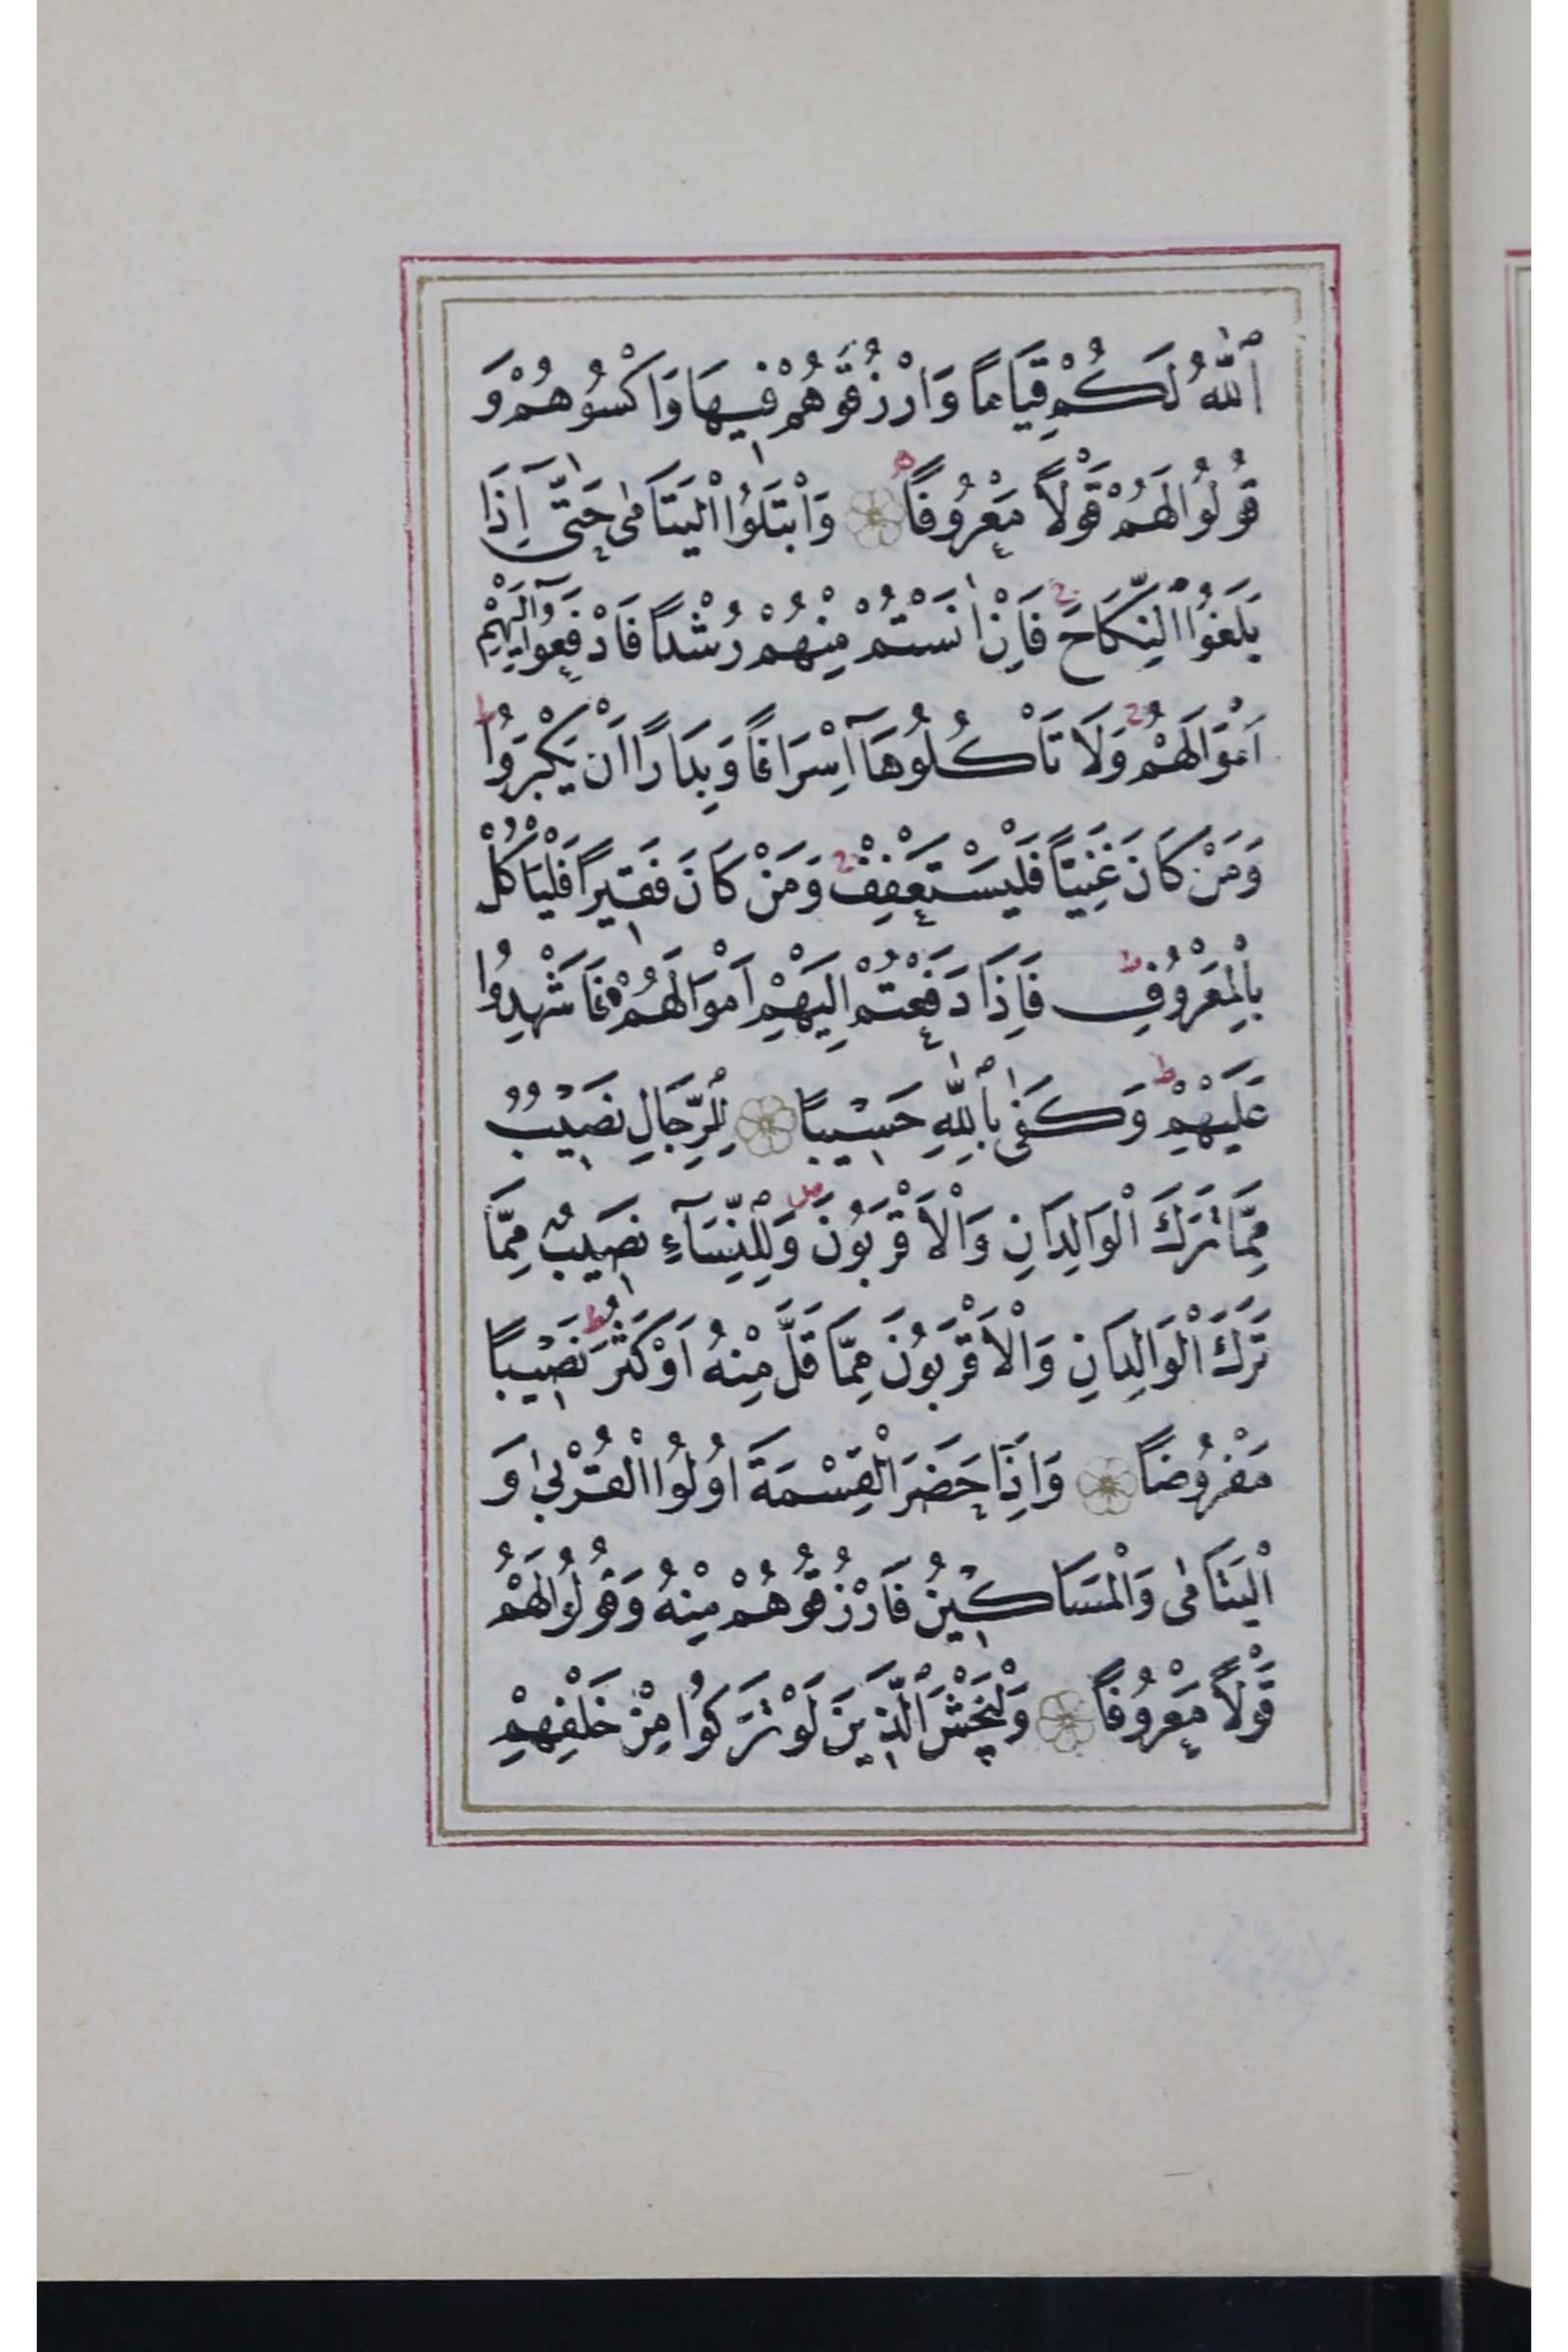 ٱللّٰهُ لَكُمْ قِيَامًا وَارْزُقُوهُمْ فِيهَا وَاكْسُوهُمْ وَ
قُولُوا لَهُمْ قَوْلًا مَعْرُوفًا وَابْتَلُوا الْيَتَامٰى حَتّٰىٓ اِذَا
بَلَغُوا ٱلنِّكَاحَ ج فَاِنْ اٰنَسْتُمْ مِنْهُمْ رُشْدًا فَادْفَعُوٓا اِلَيْهِمْ
اَمْوَالَهُمْ ج وَلَا تَأْكُلُوهَآ اِسْرَافًا وَبِدَارًا اَنْ يَكْبَرُوا ط
وَمَنْ كَانَ غَنِيًّا فَلْيَسْتَعْفِفْ ج وَمَنْ كَانَ فَقِيرًا فَلْيَأْكُلْ
بِالْمَعْرُوفِ ط فَاِذَا دَفَعْتُمْ اِلَيْهِمْ اَمْوَالَهُمْ فَاَشْهِدُوا
عَلَيْهِمْ ط وَكَفٰى بِٱللّٰهِ حَسِيبًا لِلرِّجَالِ نَصِيبٌ
مِمَّا تَرَكَ الْوَالِدَانِ وَالْاَقْرَبُونَ صل وَلِلنِّسَآءِ نَصِيبٌ مِمَّا
تَرَكَ الْوَالِدَانِ وَالْاَقْرَبُونَ مِمَّا قَلَّ مِنْهُ اَوْ كَثُرَ ط نَصِيبًا
مَفْرُوضًا وَاِذَا حَضَرَ الْقِسْمَةَ اُولُوا الْقُرْبٰى وَ
الْيَتَامٰى وَالْمَسَاكِينُ فَارْزُقُوهُمْ مِنْهُ وَقُولُوا لَهُمْ
قَوْلًا مَعْرُوفًا وَلْيَخْشَ ٱلَّذِينَ لَوْ تَرَكُوا مِنْ خَلْفِهِمْ